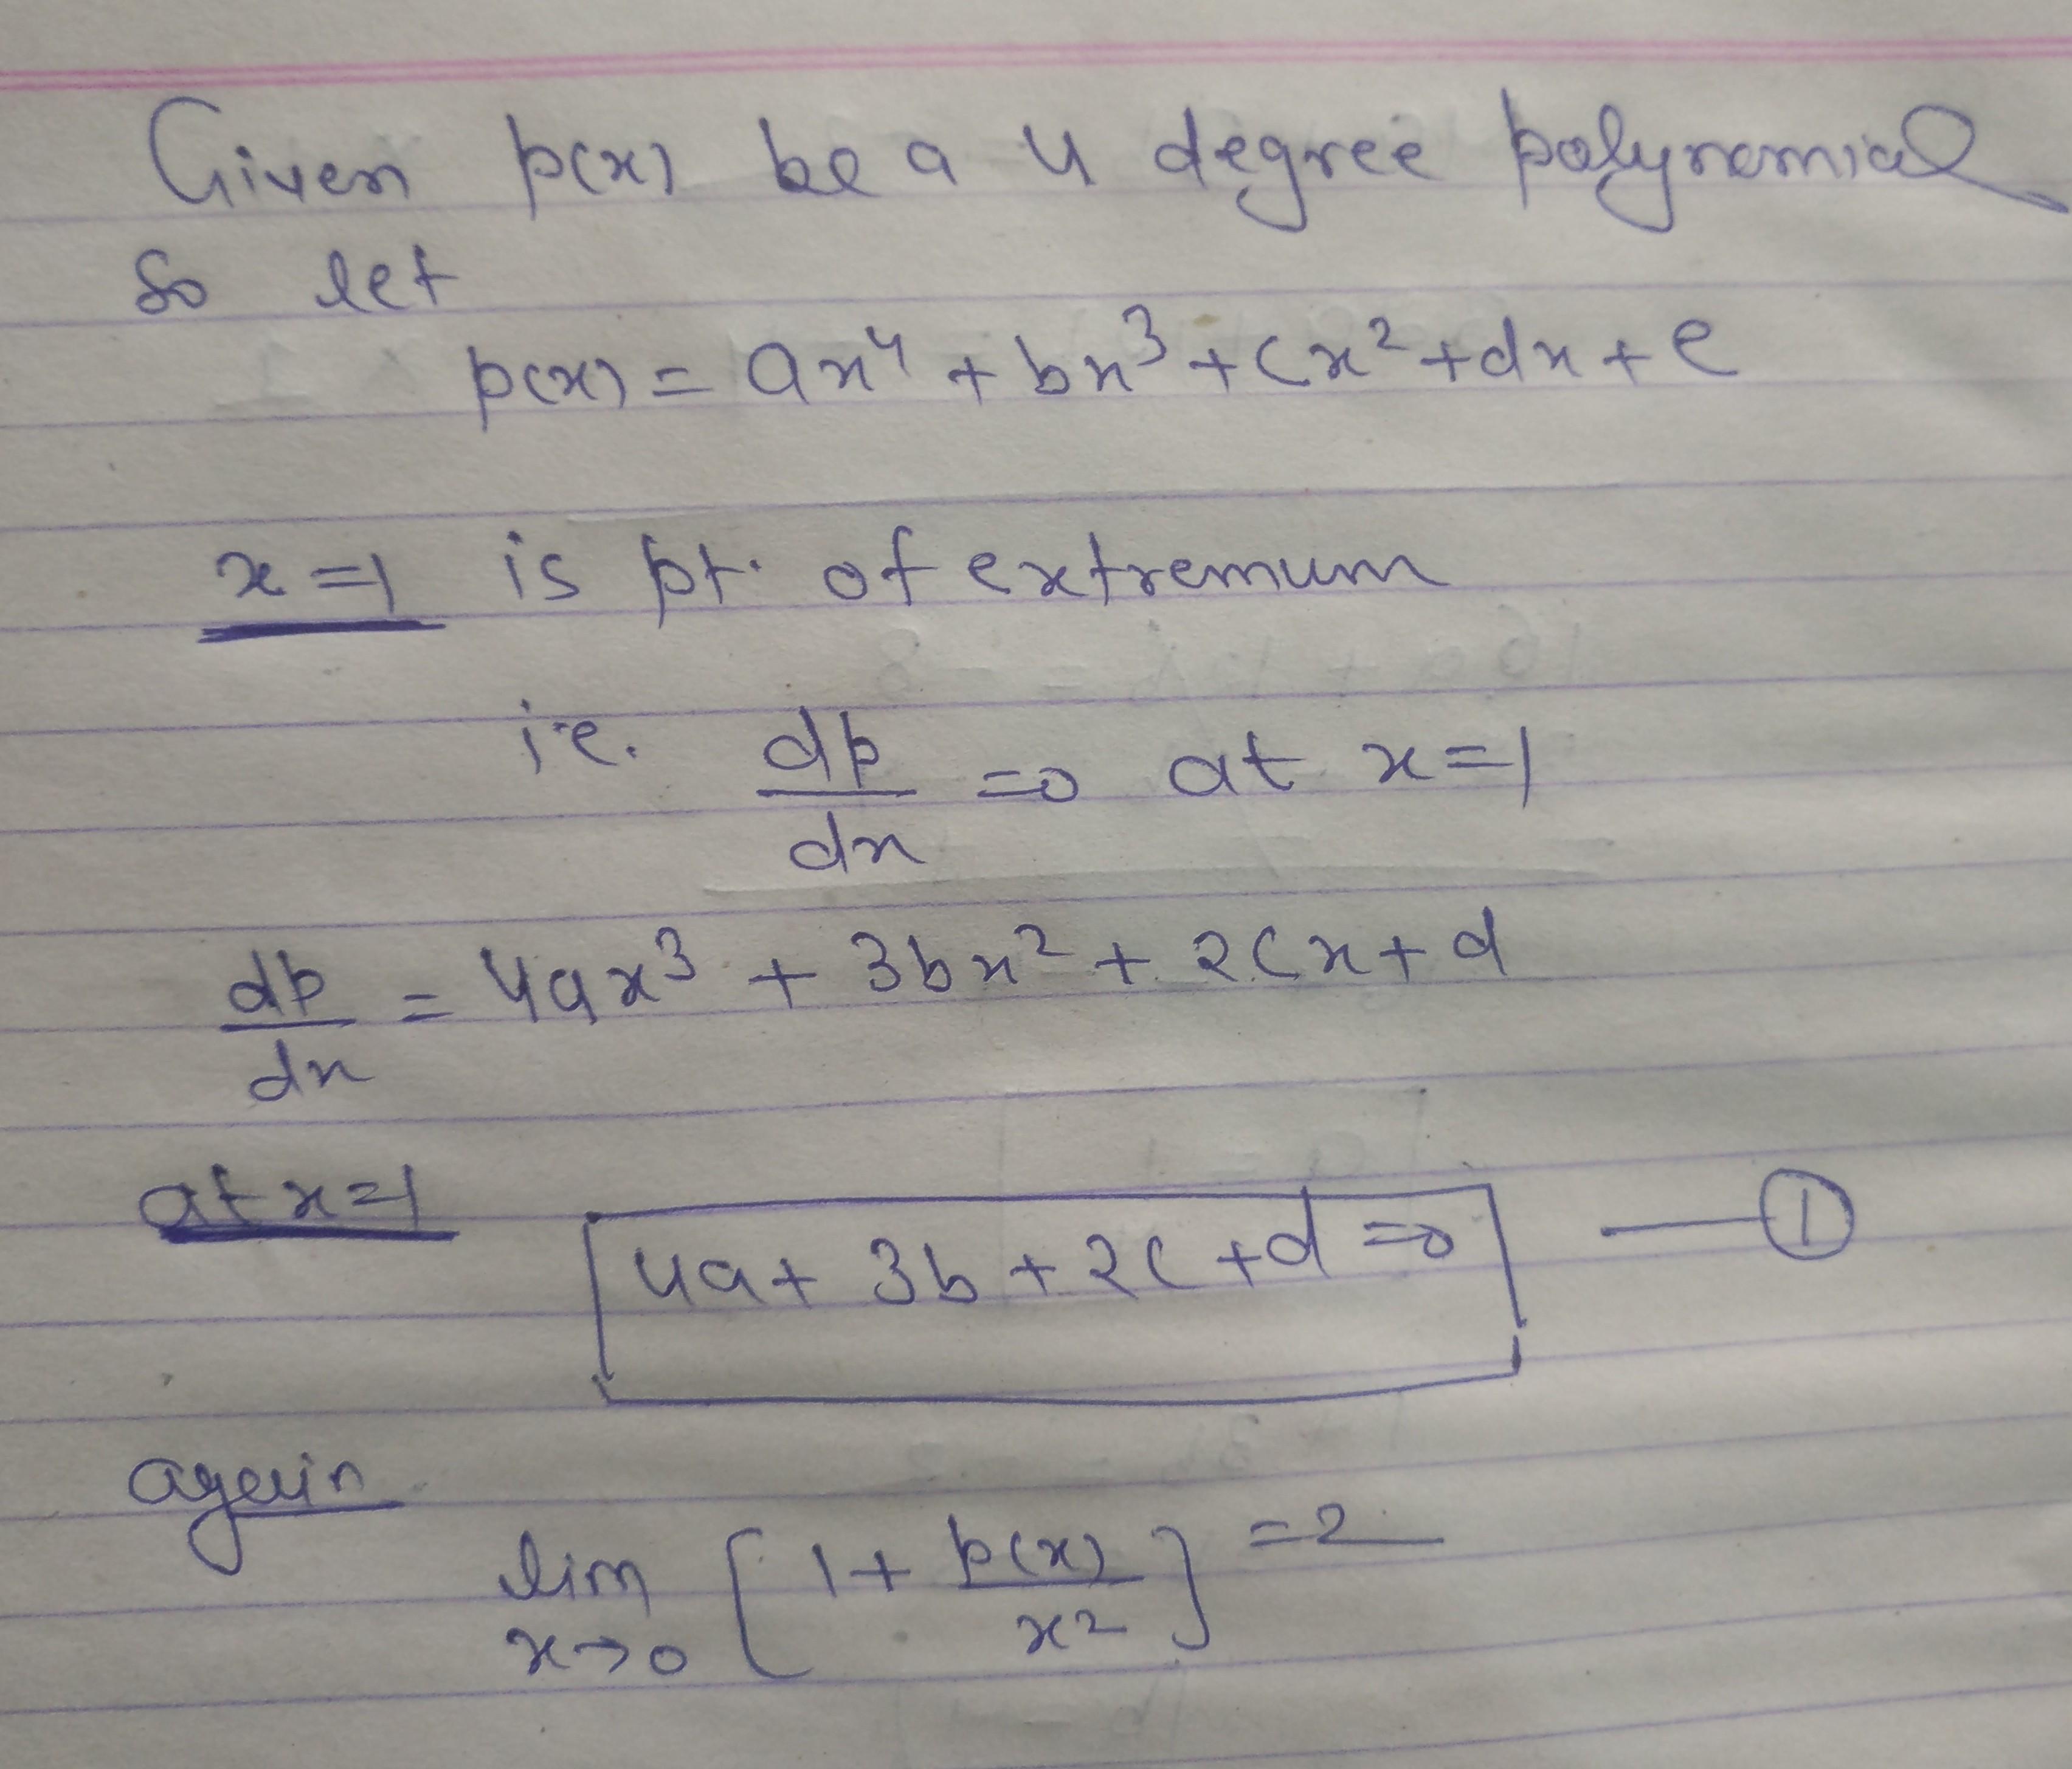 Given p(x) be a 4 degree polynomial
So let
p(x) = ax⁴ + bx³ + cx² + dx + e
x = 1 is pt. of extremum
i.e. dp/dx = 0 at x = 1
dp/dx = 4ax³ + 3bx² + 2cx + d
at x = 1
4a + 3b + 2c + d = 0 — ①
again
lim x→0 [1 + p(x)/x²] = 2